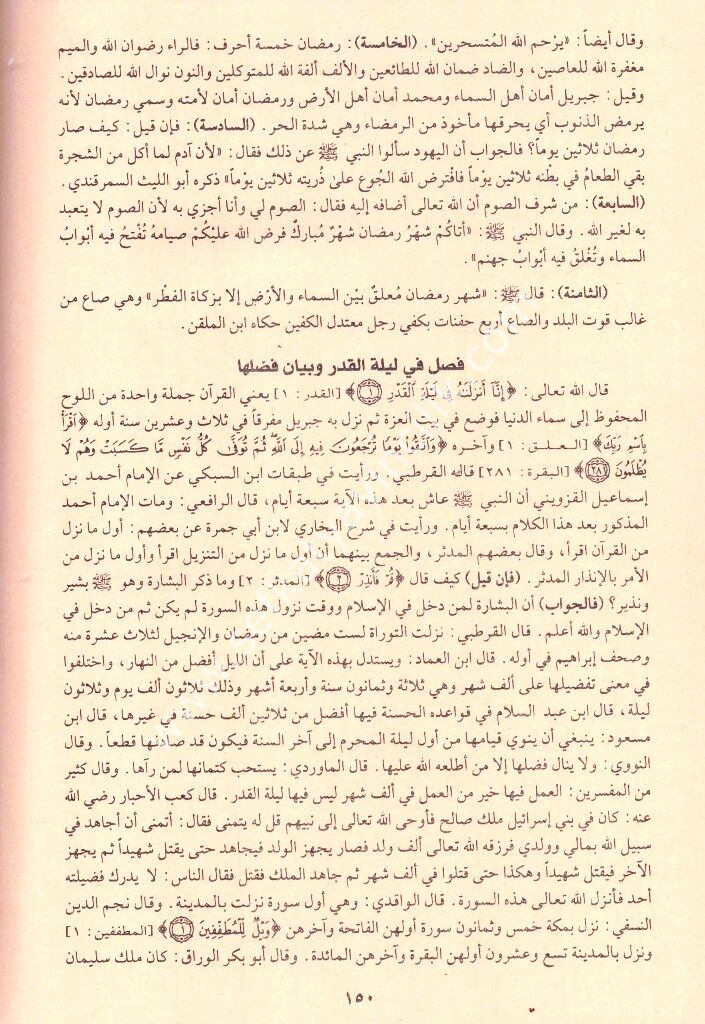 وقال أيضاً: «يرْحم الله المُتسحرين». (الخامسة): رمضان خمسة أحرف: فالراء رضوان الله والميم
مغفرة الله للعاصين، والضاد ضمان الله للطائعين والألف ألفة الله للمتوكلين والنون نوال الله للصادقين.
وقيل: جبريل أمان أهل السماء ومحمد أمان أهل الأرض ورمضان أمان لأمته وسمي رمضان لأنه
يرمض الذنوب أي يحرقها مأخوذ من الرمضاء وهي شدة الحر. (السادسة): فإن قيل: كيف صار
رمضان ثلاثين يوماً؟ فالجواب أن اليهود سألوا النبي ﷺ عن ذلك فقال: «لأن آدم لما أكل من الشجرة
بقي الطعامُ في بطْنه ثلاثين يوْماً فافْترض الله الجُوع علىٰ ذُريته ثلاثين يوْماً» ذكره أبو الليث السمرقندي.
(السابعة): من شرف الصوم أن الله تعالى أضافه إليه فقال: الصوم لي وأنا أجزي به لأن الصوم لا يتعبد
به لغير الله. وقال النبي ﷺ: «أتاكُمْ شهْرُ رمضان شهْرٌ مُباركٌ فرض اللهُ عليْكُمْ صيامهُ تُفْتحُ فيه أبْوابُ
السماء وتُغْلقُ فيه أبْوابُ جهنم».
(الثامنة): قال ﷺ: «شهر رمضان مُعلقٌ بيْن السماء والأرْض إلا بزكاة الفطْر» وهي صاع من
غالب قوت البلد والصاع أربع حفنات بكفي رجل معتدل الكفين حكاه ابن الملقن.
فصل في ليلة القدر وبيان فضلها
قال الله تعالى: ﴿إِنَّا أَنزَلْنَاهُ فِى لَيْلَةِ الْقَدْرِ ۝١﴾ [القدر: ١] يعني القرآن جملة واحدة من اللوح
المحفوظ إلى سماء الدنيا فوضع في بيت العزة ثم نزل به جبريل مفرقاً في ثلاث وعشرين سنة أوله ﴿اقْرَأْ
بِاسْمِ رَبِّكَ﴾ [العلق: ١] وآخره ﴿وَاتَّقُوا يَوْمًا تُرْجَعُونَ فِيهِ إِلَى اللَّهِ ثُمَّ تُوَفَّى كُلُّ نَفْسٍ مَّا كَسَبَتْ وَهُمْ لَا
يُظْلَمُونَ ۝٢٨١﴾ [البقرة: ٢٨١] قاله القرطبي. ورأيت في طبقات ابن السبكي عن الإمام أحمد بن
إسماعيل القزويني أن النبي ﷺ عاش بعد هذه الآية سبعة أيام، قال الرافعي: ومات الإمام أحمد
المذكور بعد هذا الكلام بسبعة أيام. ورأيت في شرح البخاري لابن أبي جمرة عن بعضهم: أول ما نزل
من القرآن اقرأ، وقال بعضهم المدثر، والجمع بينهما أن أول ما نزل من التنزيل اقرأ وأول ما نزل من
الأمر بالإنذار المدثر. (فإن قيل) كيف قال ﴿قُمْ فَأَنذِرْ ۝٢﴾ [المدثر: ٢] وما ذكر البشارة وهو ﷺ بشير
ونذير؟ (فالجواب) أن البشارة لمن دخل في الإسلام ووقت نزول هذه السورة لم يكن ثم من دخل في
الإسلام والله أعلم. قال القرطبي: نزلت التوراة لست مضين من رمضان والإنجيل لثلاث عشرة منه
وصحف إبراهيم في أوله. قال ابن العماد: ويستدل بهذه الآية على أن الليل أفضل من النهار، واختلفوا
في معنى تفضيلها على ألف شهر وهي ثلاثة وثمانون سنة وأربعة أشهر وذلك ثلاثون ألف يوم وثلاثون
ليلة، قال ابن عبد السلام في قواعده الحسنة فيها أفضل من ثلاثين ألف حسنة في غيرها، قال ابن
مسعود: ينبغي أن ينوي قيامها من أول ليلة المحرم إلى آخر السنة فيكون قد صادفها قطعاً. وقال
النووي: ولا ينال فضلها إلا من أطلعه الله عليها. قال الماوردي: يستحب كتمانها لمن رآها. وقال كثير
من المفسرين: العمل فيها خير من العمل في ألف شهر ليس فيها ليلة القدر. قال كعب الأحبار رضي الله
عنه: كان في بني إسرائيل ملك صالح فأوحى الله تعالى إلى نبيهم قل له يتمنى فقال: أتمنى أن أجاهد في
سبيل الله بمالي وولدي فرزقه الله تعالى ألف ولد فصار يجهز الولد فيجاهد حتى يقتل شهيداً ثم يجهز
الآخر فيقتل شهيداً وهكذا حتى قتلوا في ألف شهر ثم جاهد الملك فقتل فقال الناس: لا يدرك فضيلته
أحد فأنزل الله تعالى هذه السورة. قال الواقدي: وهي أول سورة نزلت بالمدينة. وقال نجم الدين
النسفي: نزل بمكة خمس وثمانون سورة أولهن الفاتحة وآخرهن ﴿وَيْلٌ لِّلْمُطَفِّفِينَ ۝١﴾ [المطففين: ١]
ونزل بالمدينة تسع وعشرون أولهن البقرة وآخرهن المائدة. وقال أبو بكر الوراق: كان ملك سليمان
١٥٠